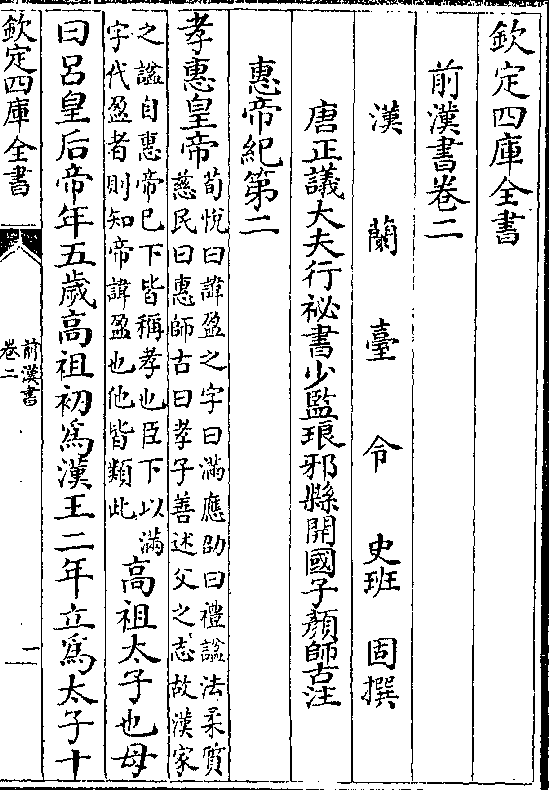 欽定四庫全書
前漢書卷二
漢蘭臺令史班固撰
唐正議大夫行祕書少監琅邪縣開國子顏師古注
惠帝紀第二
孝惠皇帝
荀悅曰諱盈之字曰滿應劭曰禮諡法柔質
慈民曰惠師古曰孝子善述父之志故漢家
之諡自惠帝已下皆稱孝也臣下以滿
字代盈者則知帝諱盈也他皆類此
高祖太子也母
曰呂皇后帝年五歲高祖初為漢王二年立為太子十
欽定四庫全書
前漢書
卷二
一